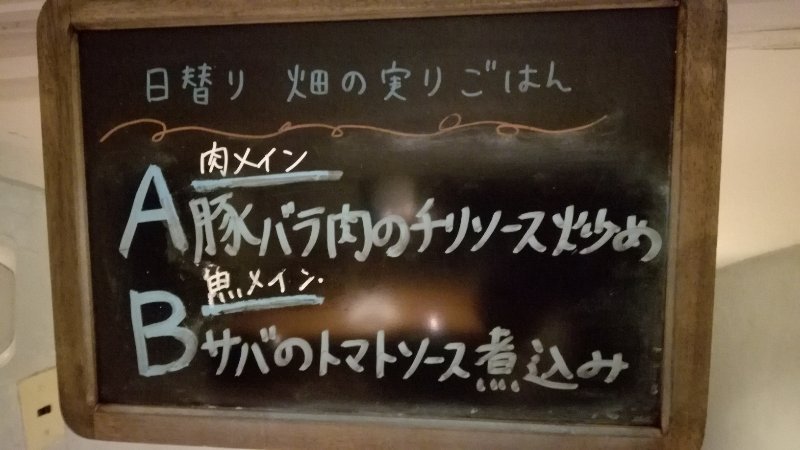 日替り 畑の実りごはん
肉メイン
A 豚バラ肉のチリソース炒め
魚メイン
B サバのトマトソース煮込み